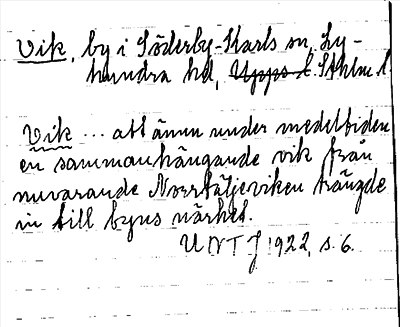 Vik, by i Söderby-Karls sn, Ly-
hundra hd, Upps l. Sthlm l.
Vik ... att ännu under medeltiden
en sammanhängande vik från
nuvarande Norrtäljeviken trängde
in till byns närhet.
UNTJ 1922, s. 6.